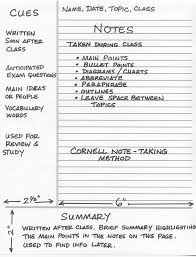 CUES
NAME, DATE, TOPIC, CLASS
NOTES
WRITTEN
SOON AFTER
CLASS
TAKEN DURING CLASS
ANTICIPATED
EXAM QUESTIONS
MAIN IDEAS
OR PEOPLE
VOCABULARY
WORDS
USED FOR
REVIEW &
STUDY
• MAIN POINTS
• BULLET POINTS
• DIAGRAMS / CHARTS
• ABBREVIATE
• PARAPHRASE
• OUTLINES
• LEAVE SPACE BETWEEN
TOPICS
CORNELL NOTE-TAKING
METHOD
2½"
6"
2"
SUMMARY
WRITTEN AFTER CLASS. BRIEF SUMMARY HIGHLIGHTING
THE MAIN POINTS IN THE NOTES ON THIS PAGE.
USED TO FIND INFO LATER.